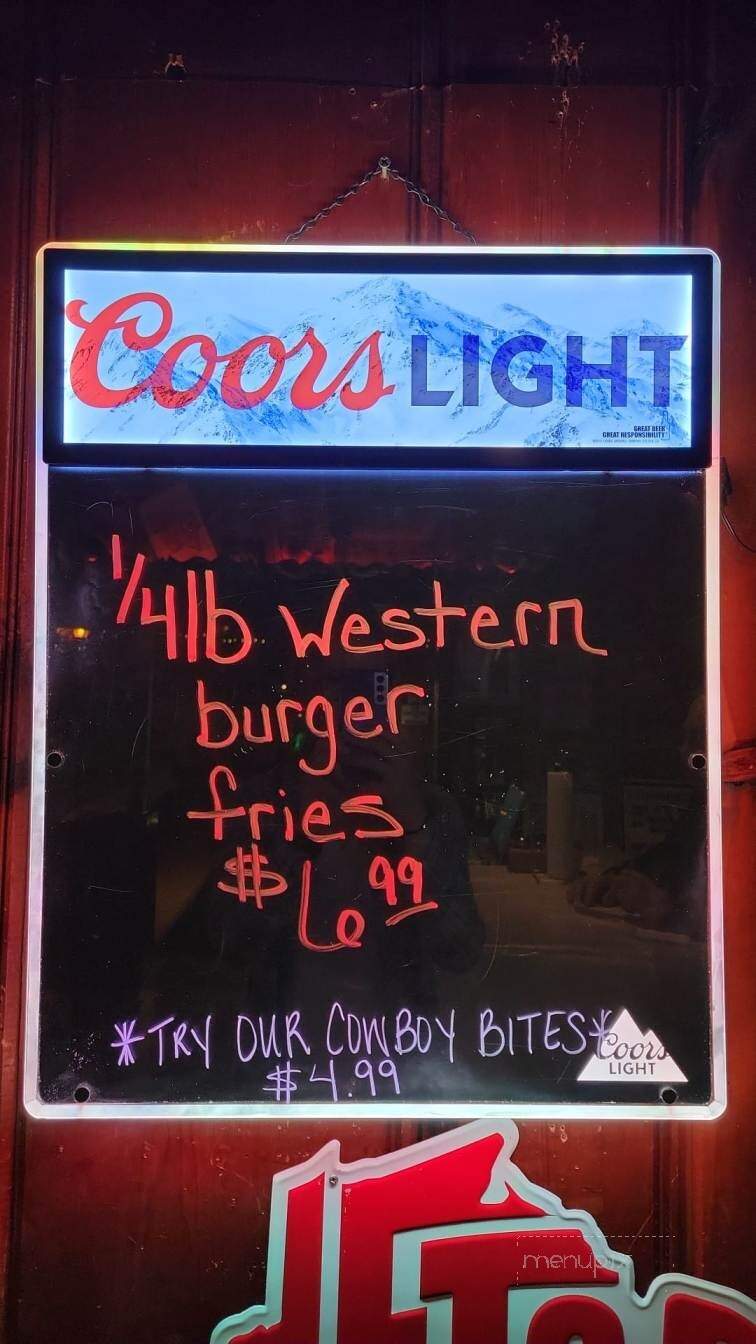 Coors LIGHT
GREAT BEER
GREAT RESPONSIBILITY
1/4lb Western
burger
fries
$6.99
*TRY OUR COWBOY BITES*
$4.99
Coors
LIGHT